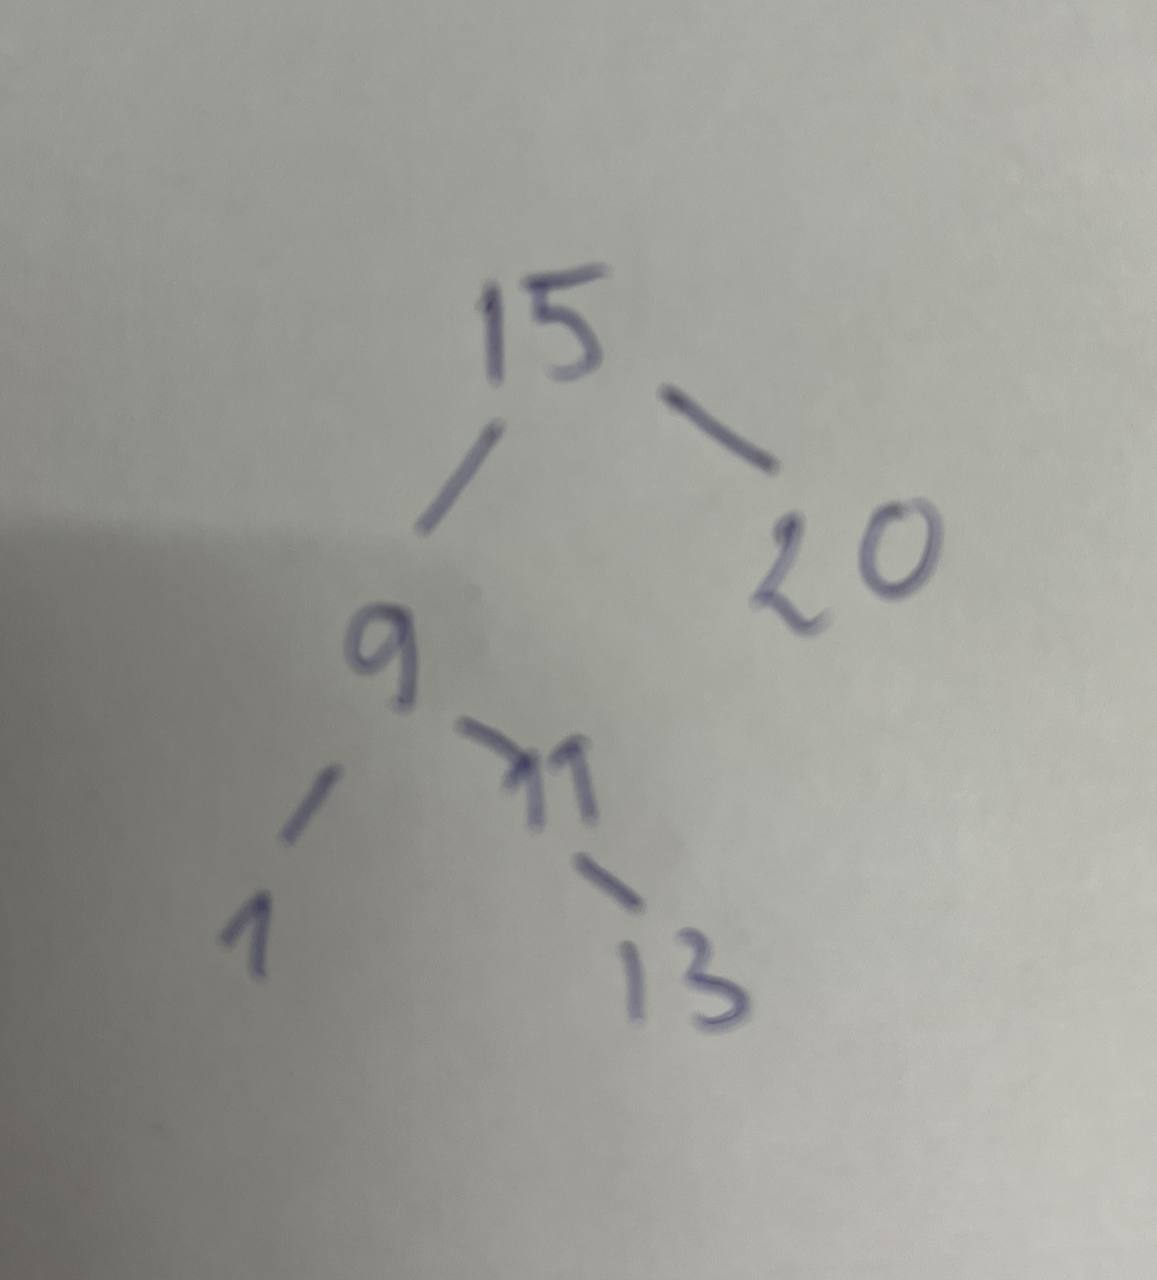 15
20
9
11
1
13